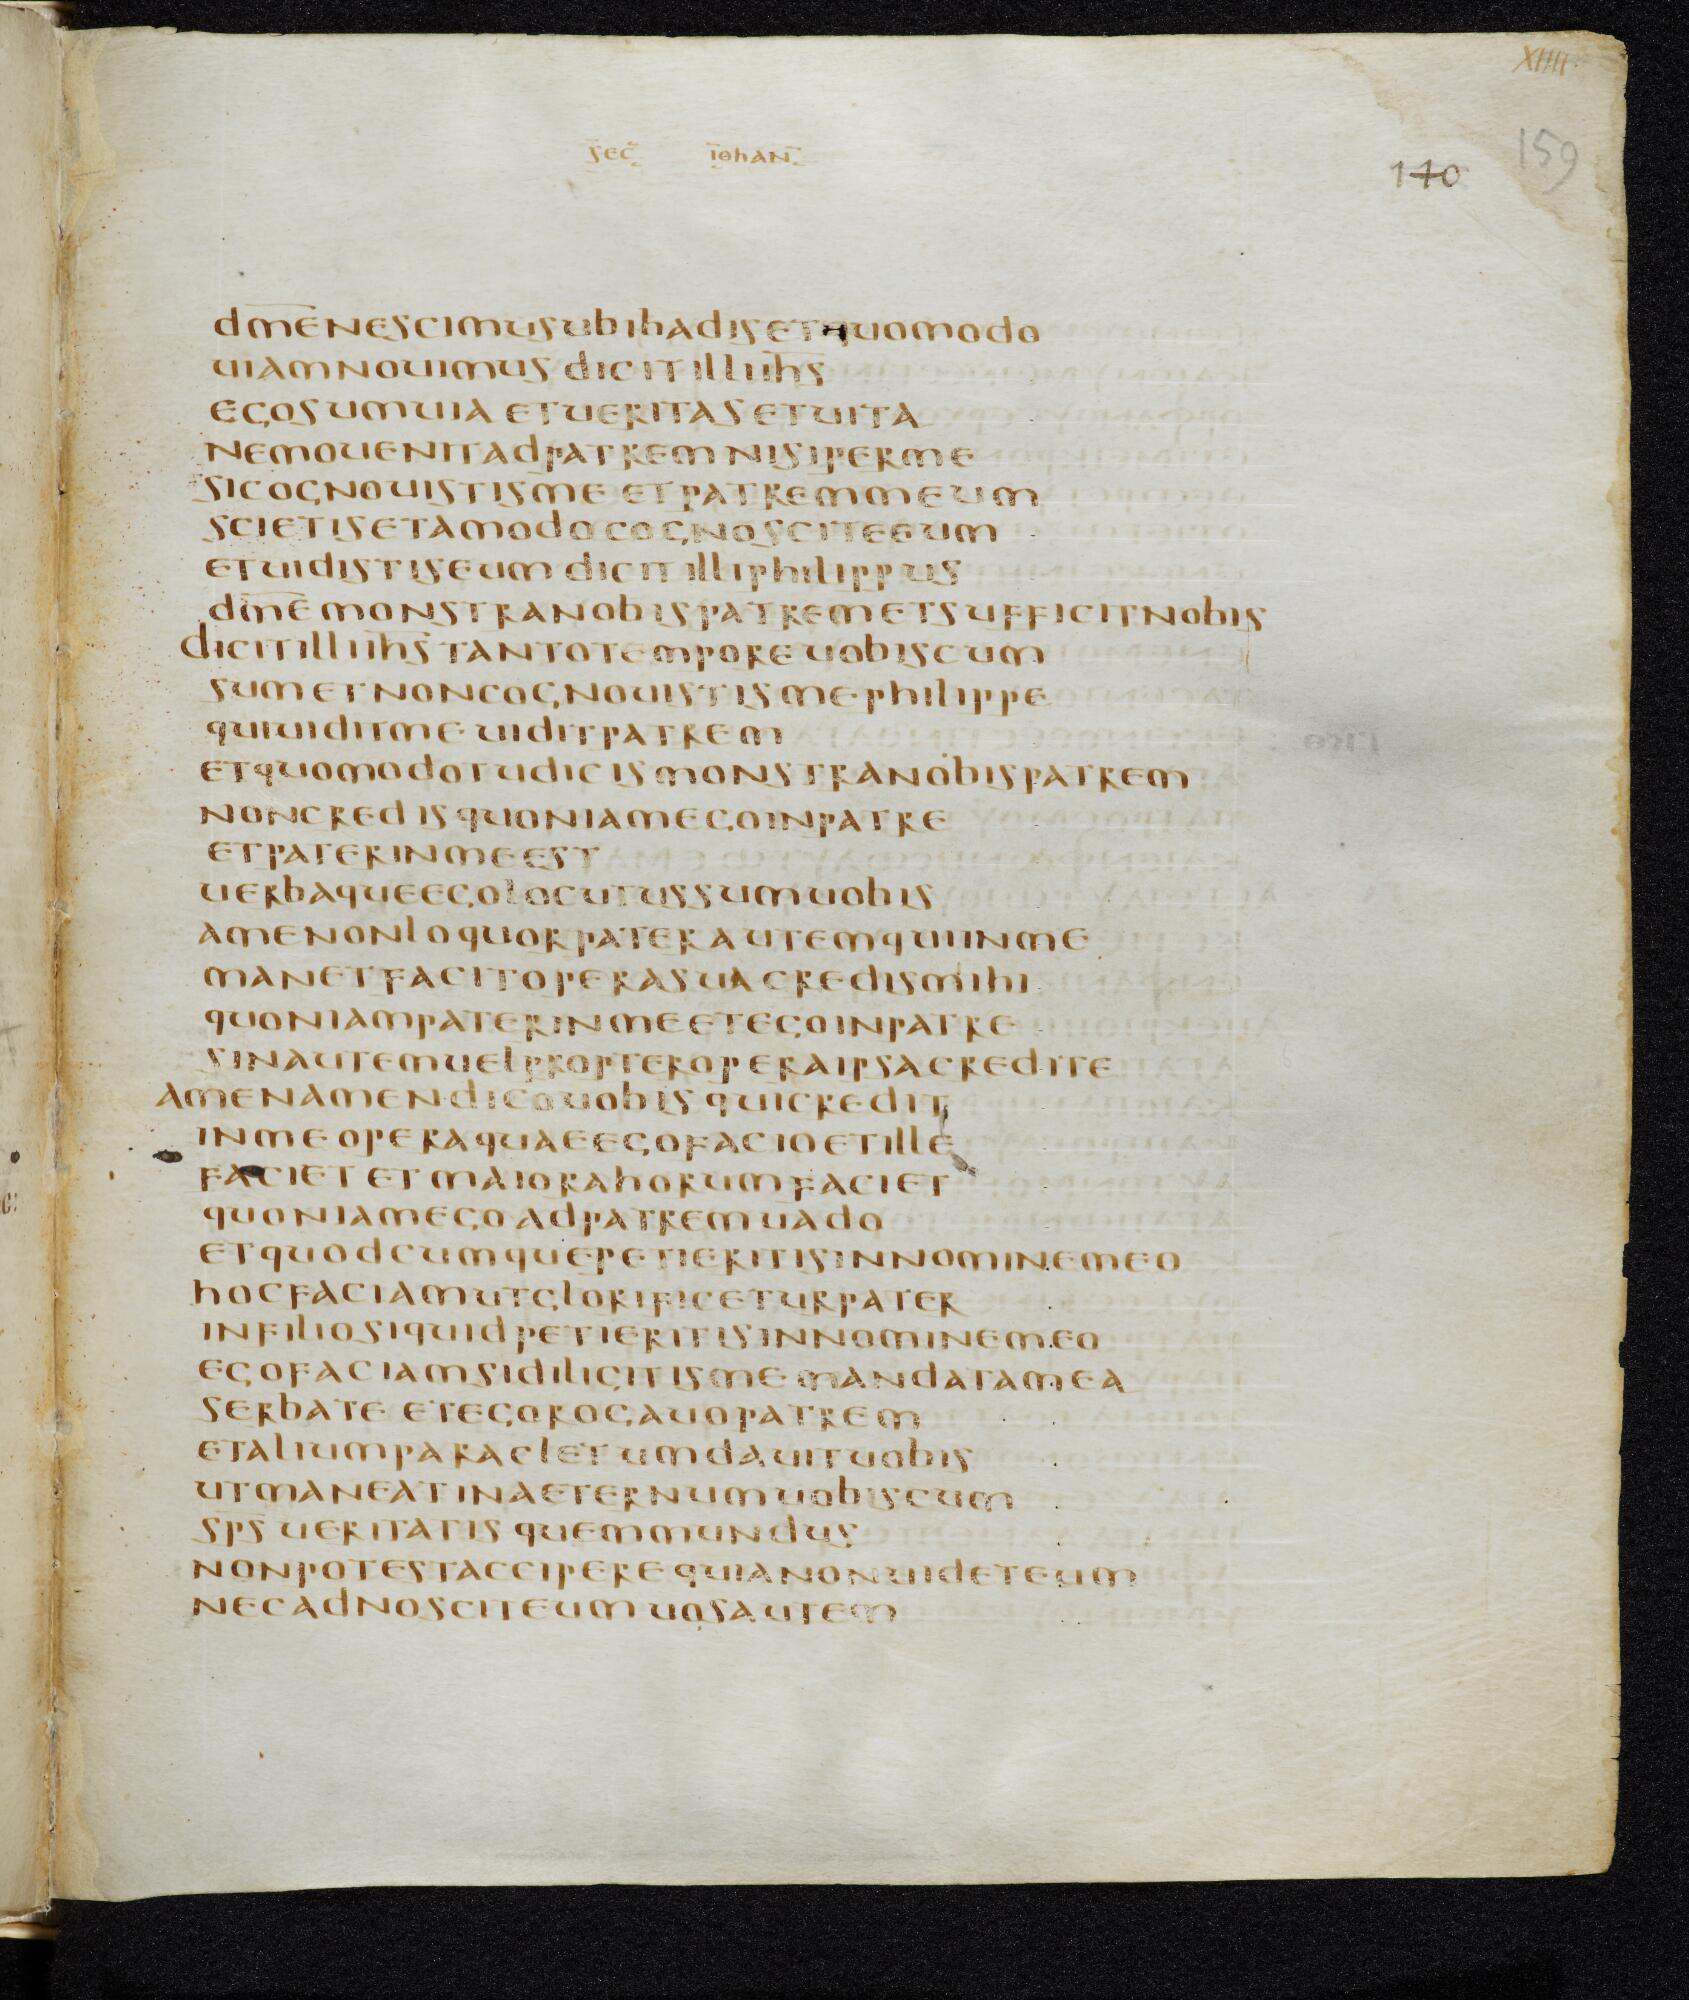 XIIII
159
110
sec̄ iōhan̄
dm̄e nescimus ubi hadis et quomodo
uiam novimus dicit illi ih̄s
ego sum uia et ueritas et uita
nemo uenit ad patrem nisi per me
si cognovistis me et patrem meum
scietis et amodo cognoscite eum
et uidistis eum dicit illi philippus
dm̄e monstra nobis patrem et sufficit nobis
dicit illi ih̄s tanto tempore uobiscum
sum et non cognouistis me philippe
qui uidit me uidit patrem
et quomodo tu dicis monstra nobis patrem
non credis quoniam ego in patre
et pater in me est
uerba que ego locutus sum uobis
a me non loquor pater autem qui in me
manet facit opera sua credis mihi
quoniam pater in me et ego in patre
sin autem uel propter opera ipsa credite
amen amen dico uobis qui credit
in me opera quae ego facio et ille
faciet et maiora horum faciet
quoniam ego ad patrem uado
et quodcumque petieritis in nomine meo
hoc faciam ut glorificetur pater
in filio si quid petieritis in nomine meo
ego faciam si diligitis me mandata mea
serbate et ego rogavo patrem
et alium paracletum dauit uobis
ut maneat in aeternum uobiscum
sp̄s ueritatis quem mundus
non potest accipere quia non uidet eum
nec adnoscit eum uos autem